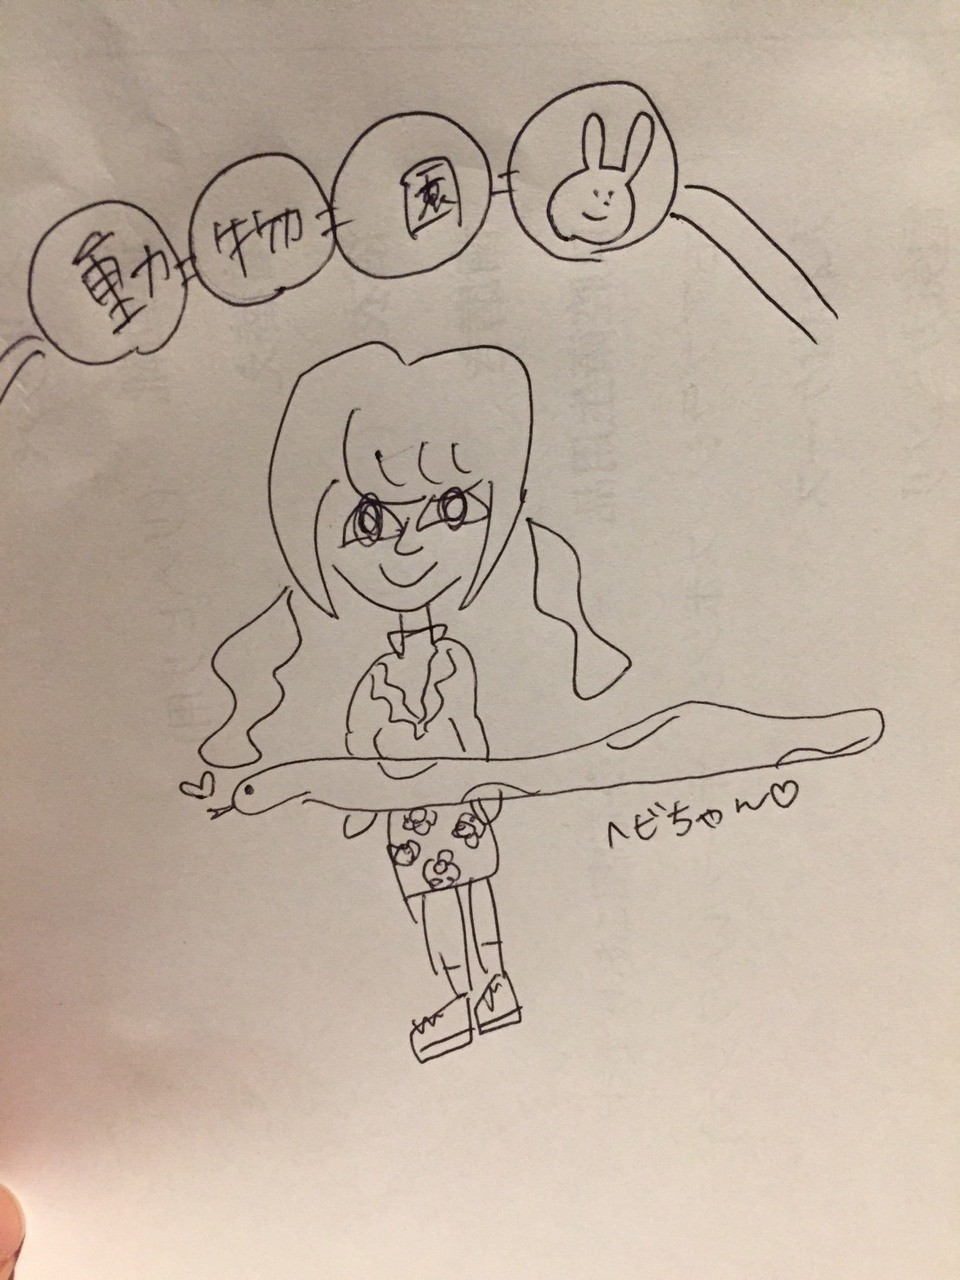 動物園
ヘビちゃん♡